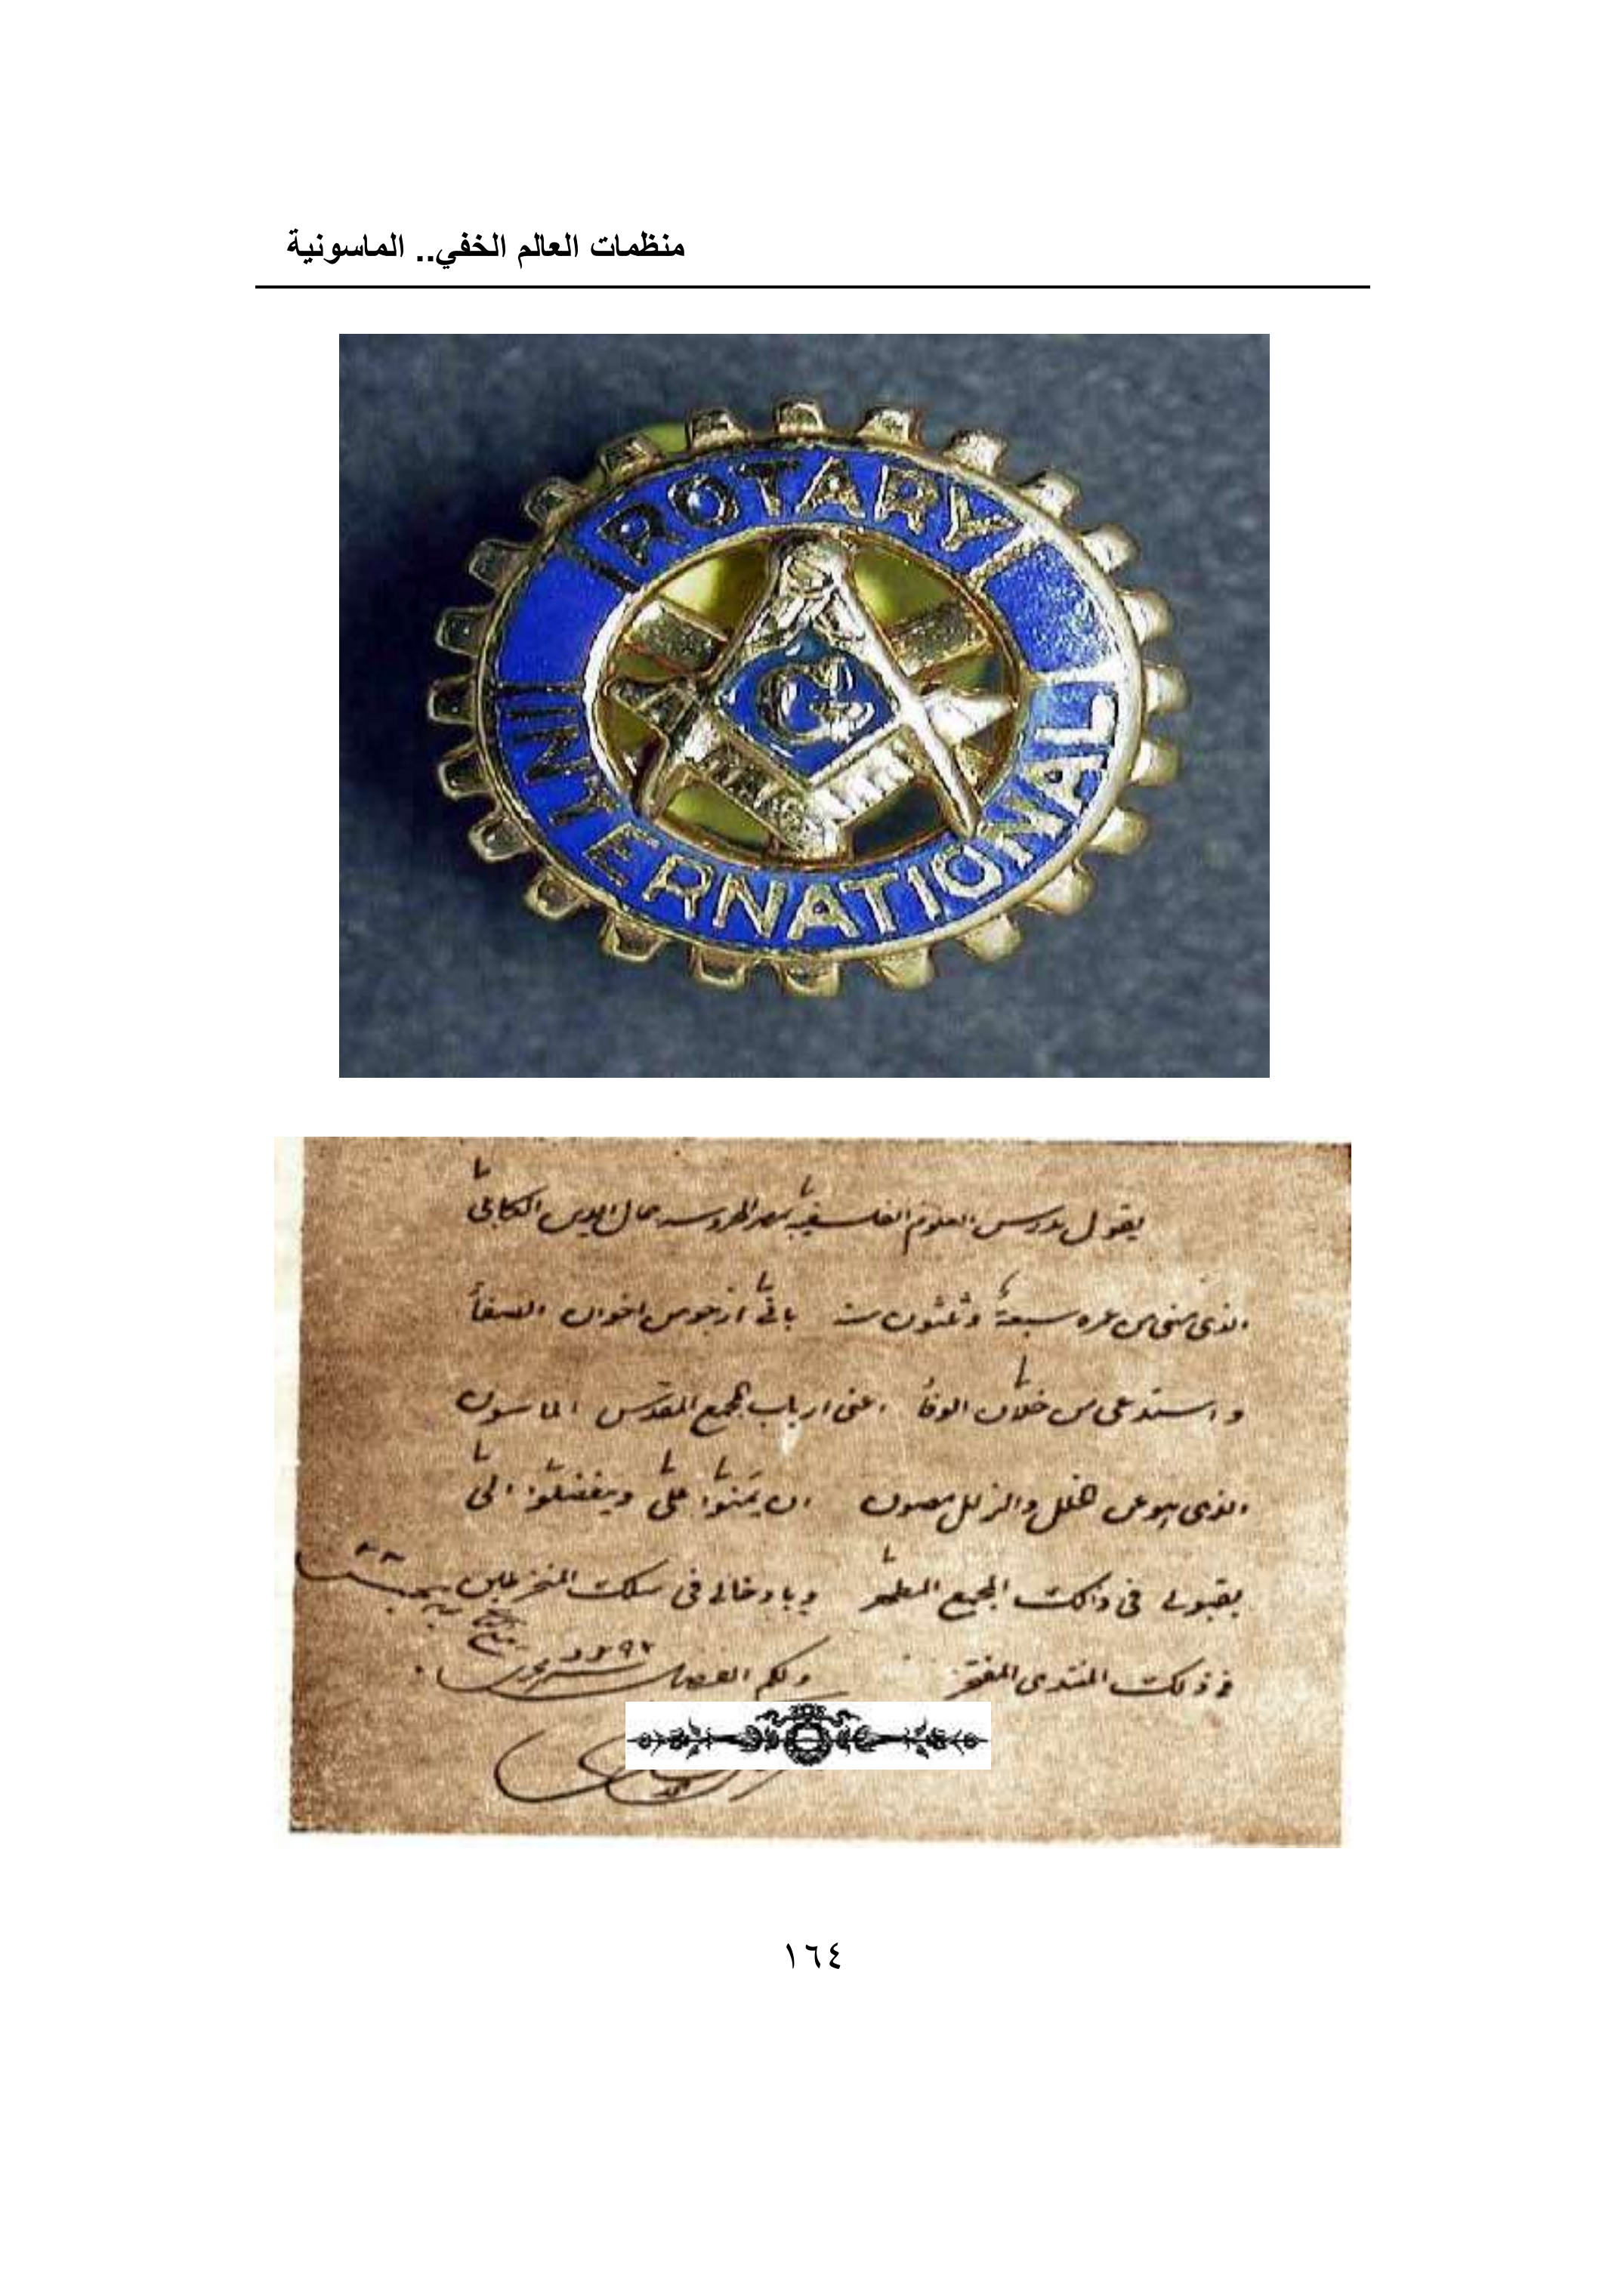 منظمات العالم الخفي.. الماسونية
ROTARY
INTERNATIONAL
G
يقول مدرس العلوم الفلسفية بمصر المحروسة جمال الدين الكابلي
الذي مضى من عمره سبعة وثلثون سنة بأني ارجو من اخوان الصفا
واستدعى من خلان الوفا اعنى ارباب المجمع المقدس الماسون
الذى هو عن الخلل والزلل مصون ان يمنوا على ويتفضلوا الى
بقبولى فى ذلك المجمع المطهر وبادخالى فى سلك المنخرطين
فى ذلك المنتدى المفتخر ولكم الفضل
١٦٤